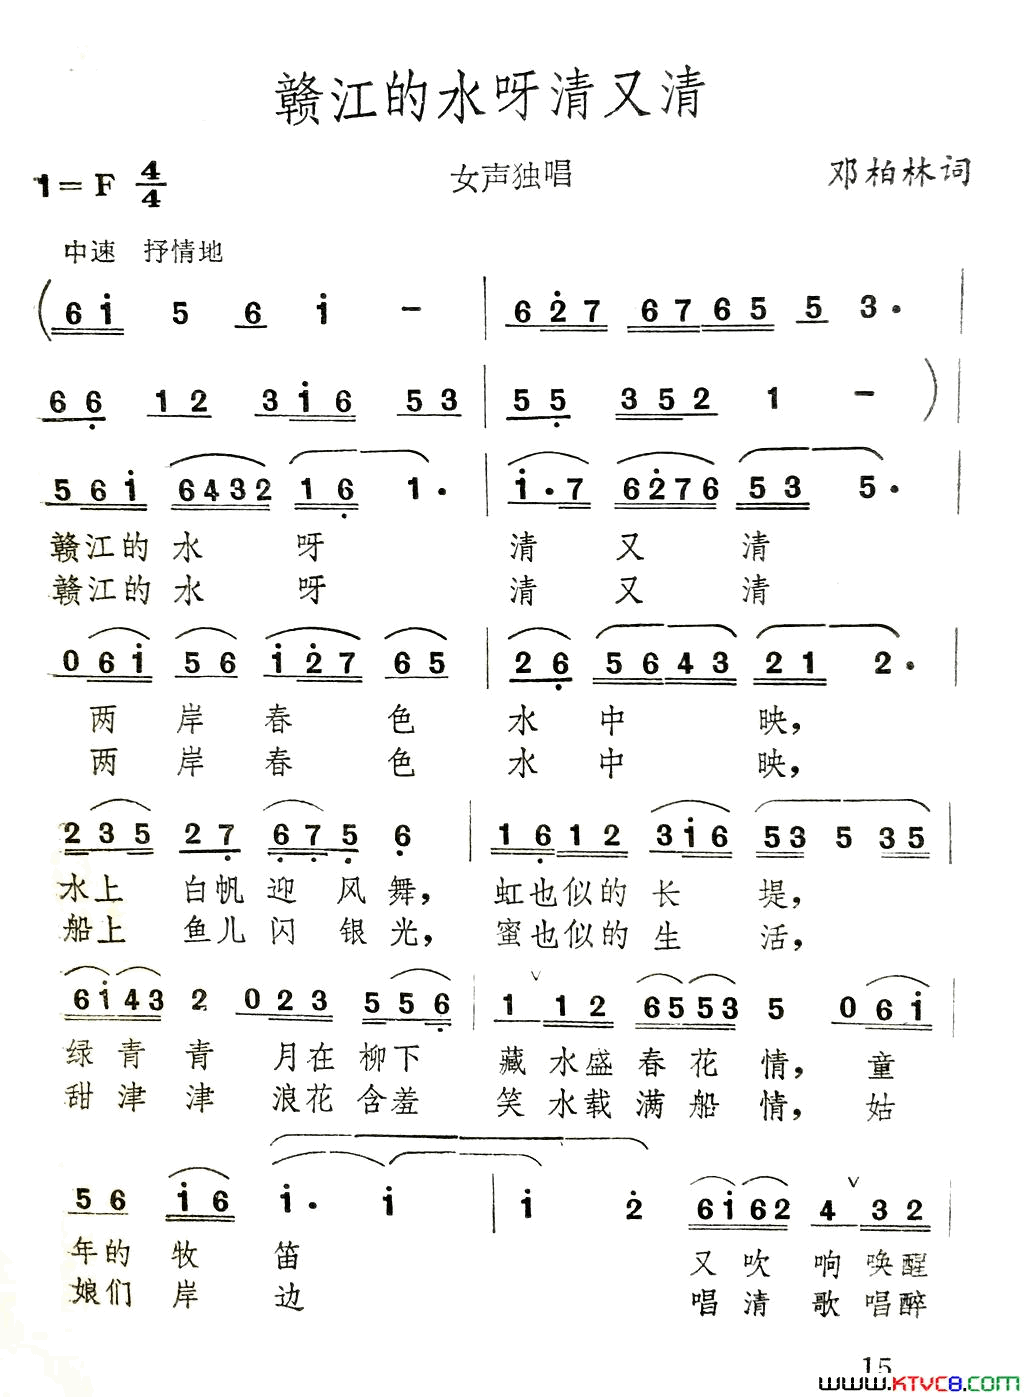 赣江的水呀清又清
1=F 4/4
女声独唱
邓柏林词
中速 抒情地
(6i 5 6 i - | 627 6765 5 3. |
66 12 3i6 53 | 55 352 1 - ) |
56i 6432 16 1. | i.7 6276 53 5. |
赣江的水 呀 清 又 清
赣江的水 呀 清 又 清
06i 56 i27 65 | 26 5643 21 2. |
两 岸 春 色 水 中 映，
两 岸 春 色 水 中 映，
235 27 675 6 | 1612 3i6 53 5 35 |
水上 白帆 迎 风 舞， 虹也似的 长 堤，
船上 鱼儿 闪 银 光， 蜜也似的 生 活，
6i43 2 023 556 | 1 ∨ 12 6553 5 06i |
绿 青 青 月在 柳下 藏 水盛 春 花 情， 童
甜 津 津 浪花 含羞 笑 水载 满 船 情， 姑
56 i6 i. i | i 2 6i62 4 ∨ 32 |
年的 牧 笛 又 吹 响 唤醒
娘们 岸 边 唱 清 歌 唱醉
15
www.KTVC8.com